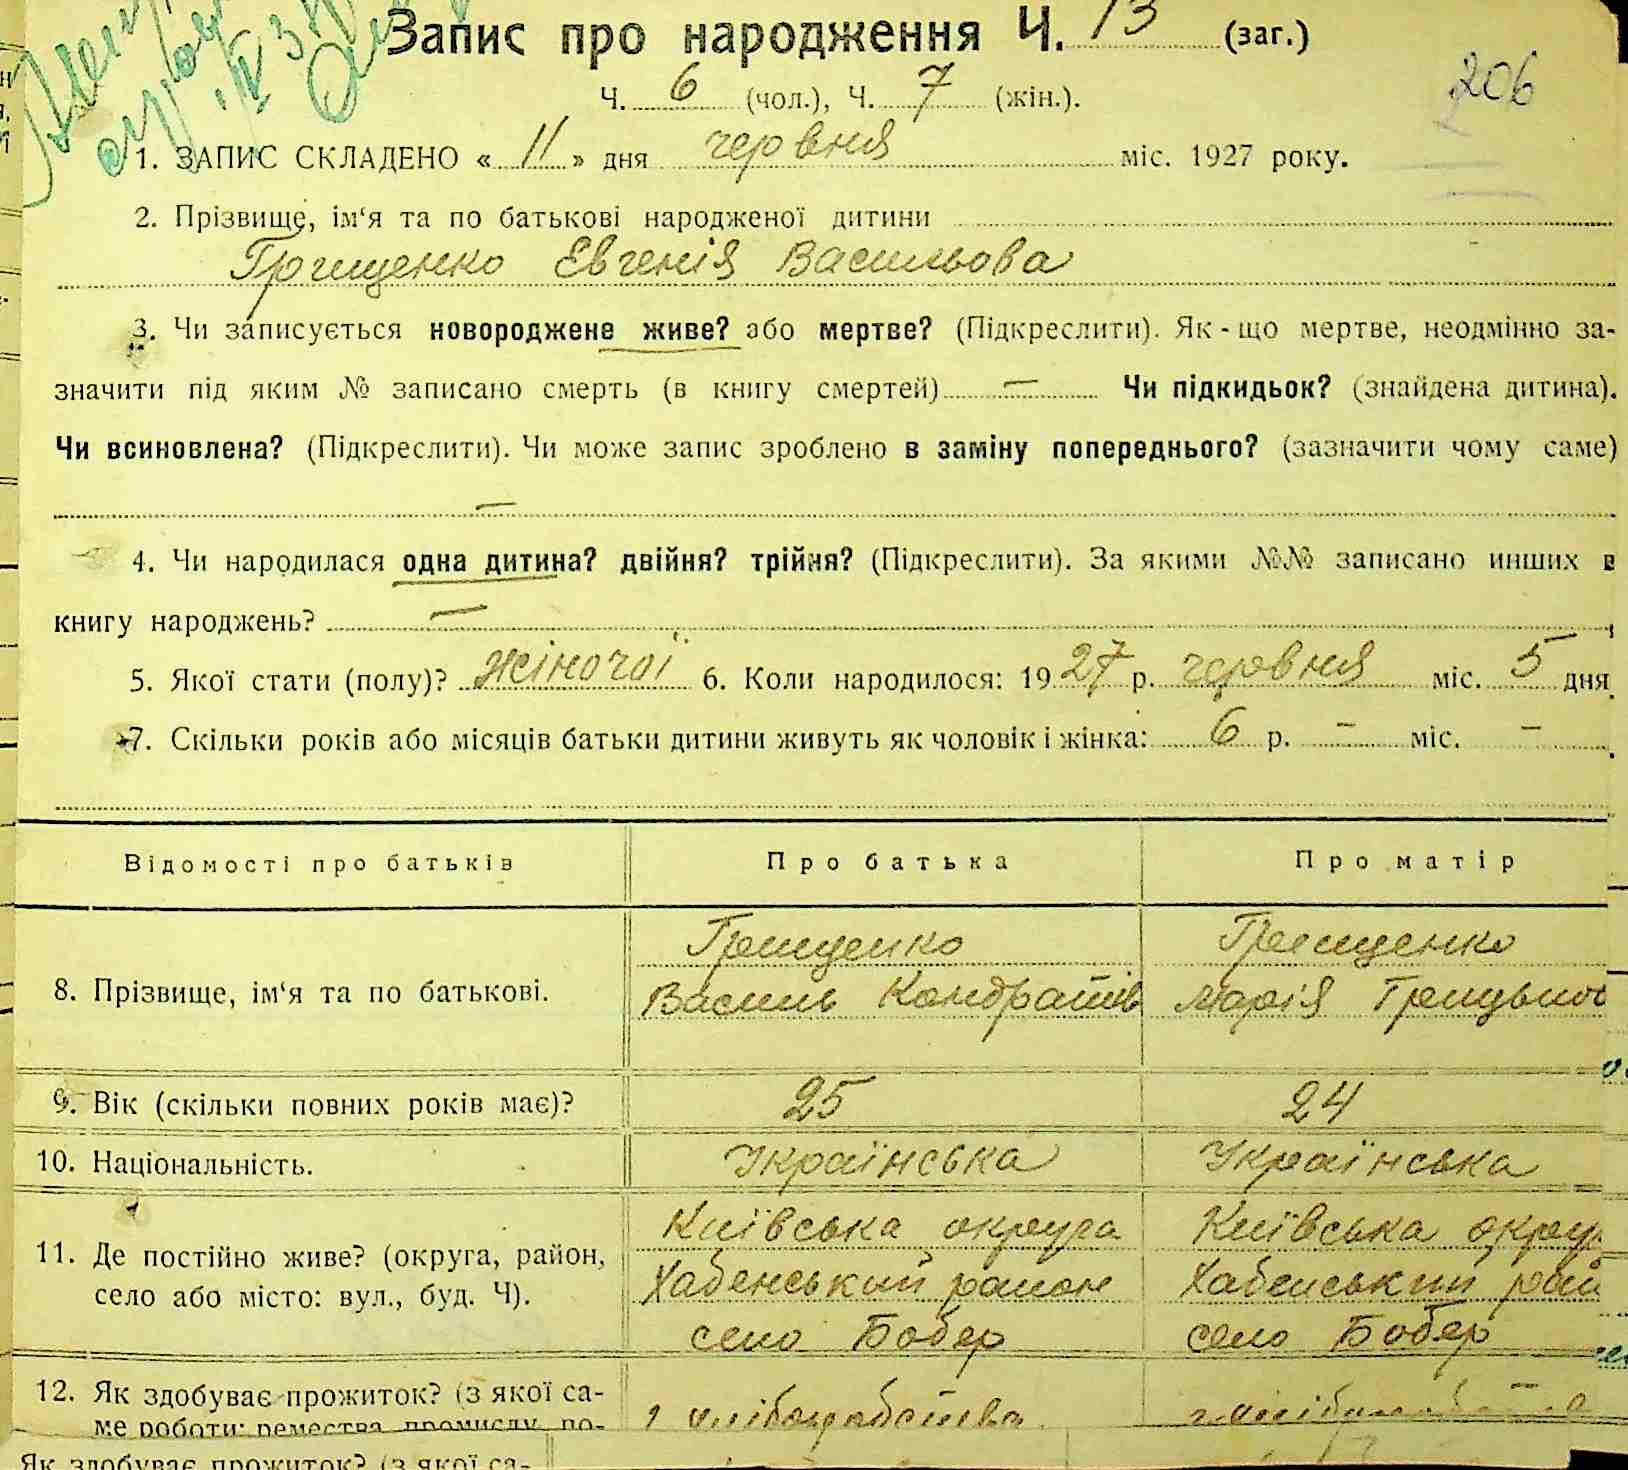 Запис про народження Ч. 13 (заг.)
Ч. 6 (чол.), Ч. 7 (жін.).
206
1. ЗАПИС СКЛАДЕНО « 11 » дня червня міс. 1927 року.
2. Прізвище, ім‘я та по батькові народженої дитини
Грищенко Евгенія Васильова
3. Чи записується новороджене живе? або мертве? (Підкреслити). Як-що мертве, неодмінно за-
значити під яким № записано смерть (в книгу смертей) — Чи підкидьок? (знайдена дитина).
Чи всиновлена? (Підкреслити). Чи може запис зроблено в заміну попереднього? (зазначити чому саме)
—
4. Чи народилася одна дитина? двійня? трійня? (Підкреслити). За якими №№ записано инших в
книгу народжень? —
5. Якої стати (полу)? жіночої 6. Коли народилося: 1927 р. червня міс. 5 дня
7. Скільки років або місяців батьки дитини живуть як чоловік і жінка: 6 р. — міс. —
Відомості про батьків Про батька Про матір
8. Прізвище, ім‘я та по батькові.
Грищенко
Василь Кондратів
Грищенко
Марія
9. Вік (скільки повних років має)? 25 24
10. Національність. Українська Українська
11. Де постійно живе? (округа, район,
село або місто: вул., буд. Ч).
Київська округа
Хабенський район
село Бобер
Київська округ
Хабенський рай
село Бобер
12. Як здобуває прожиток? (з якої са-
ме роботи: ремества, промислу, по-
з хліборобства
Як здобуває прожиток? (з якої са-